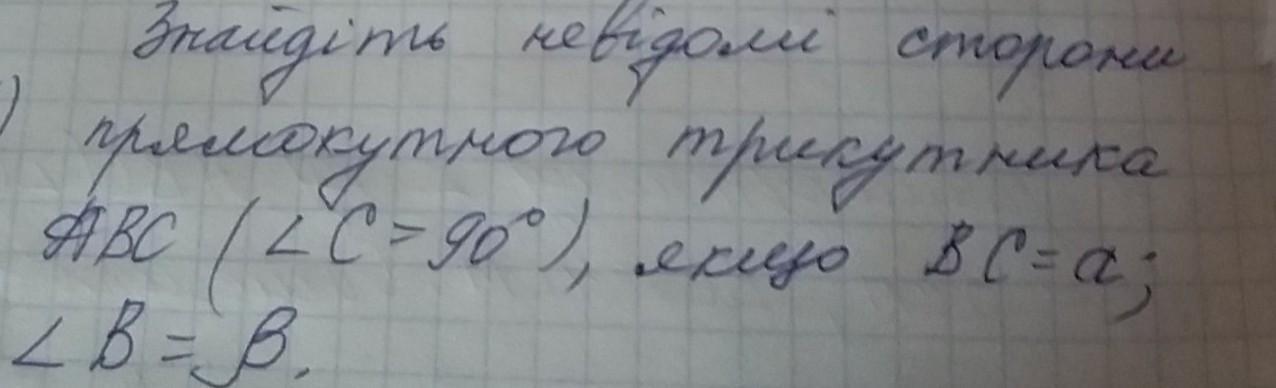 Знайдіть невідомі сторони
) прямокутного трикутника
ABC (∠C = 90°), якщо BC = a;
∠B = β.